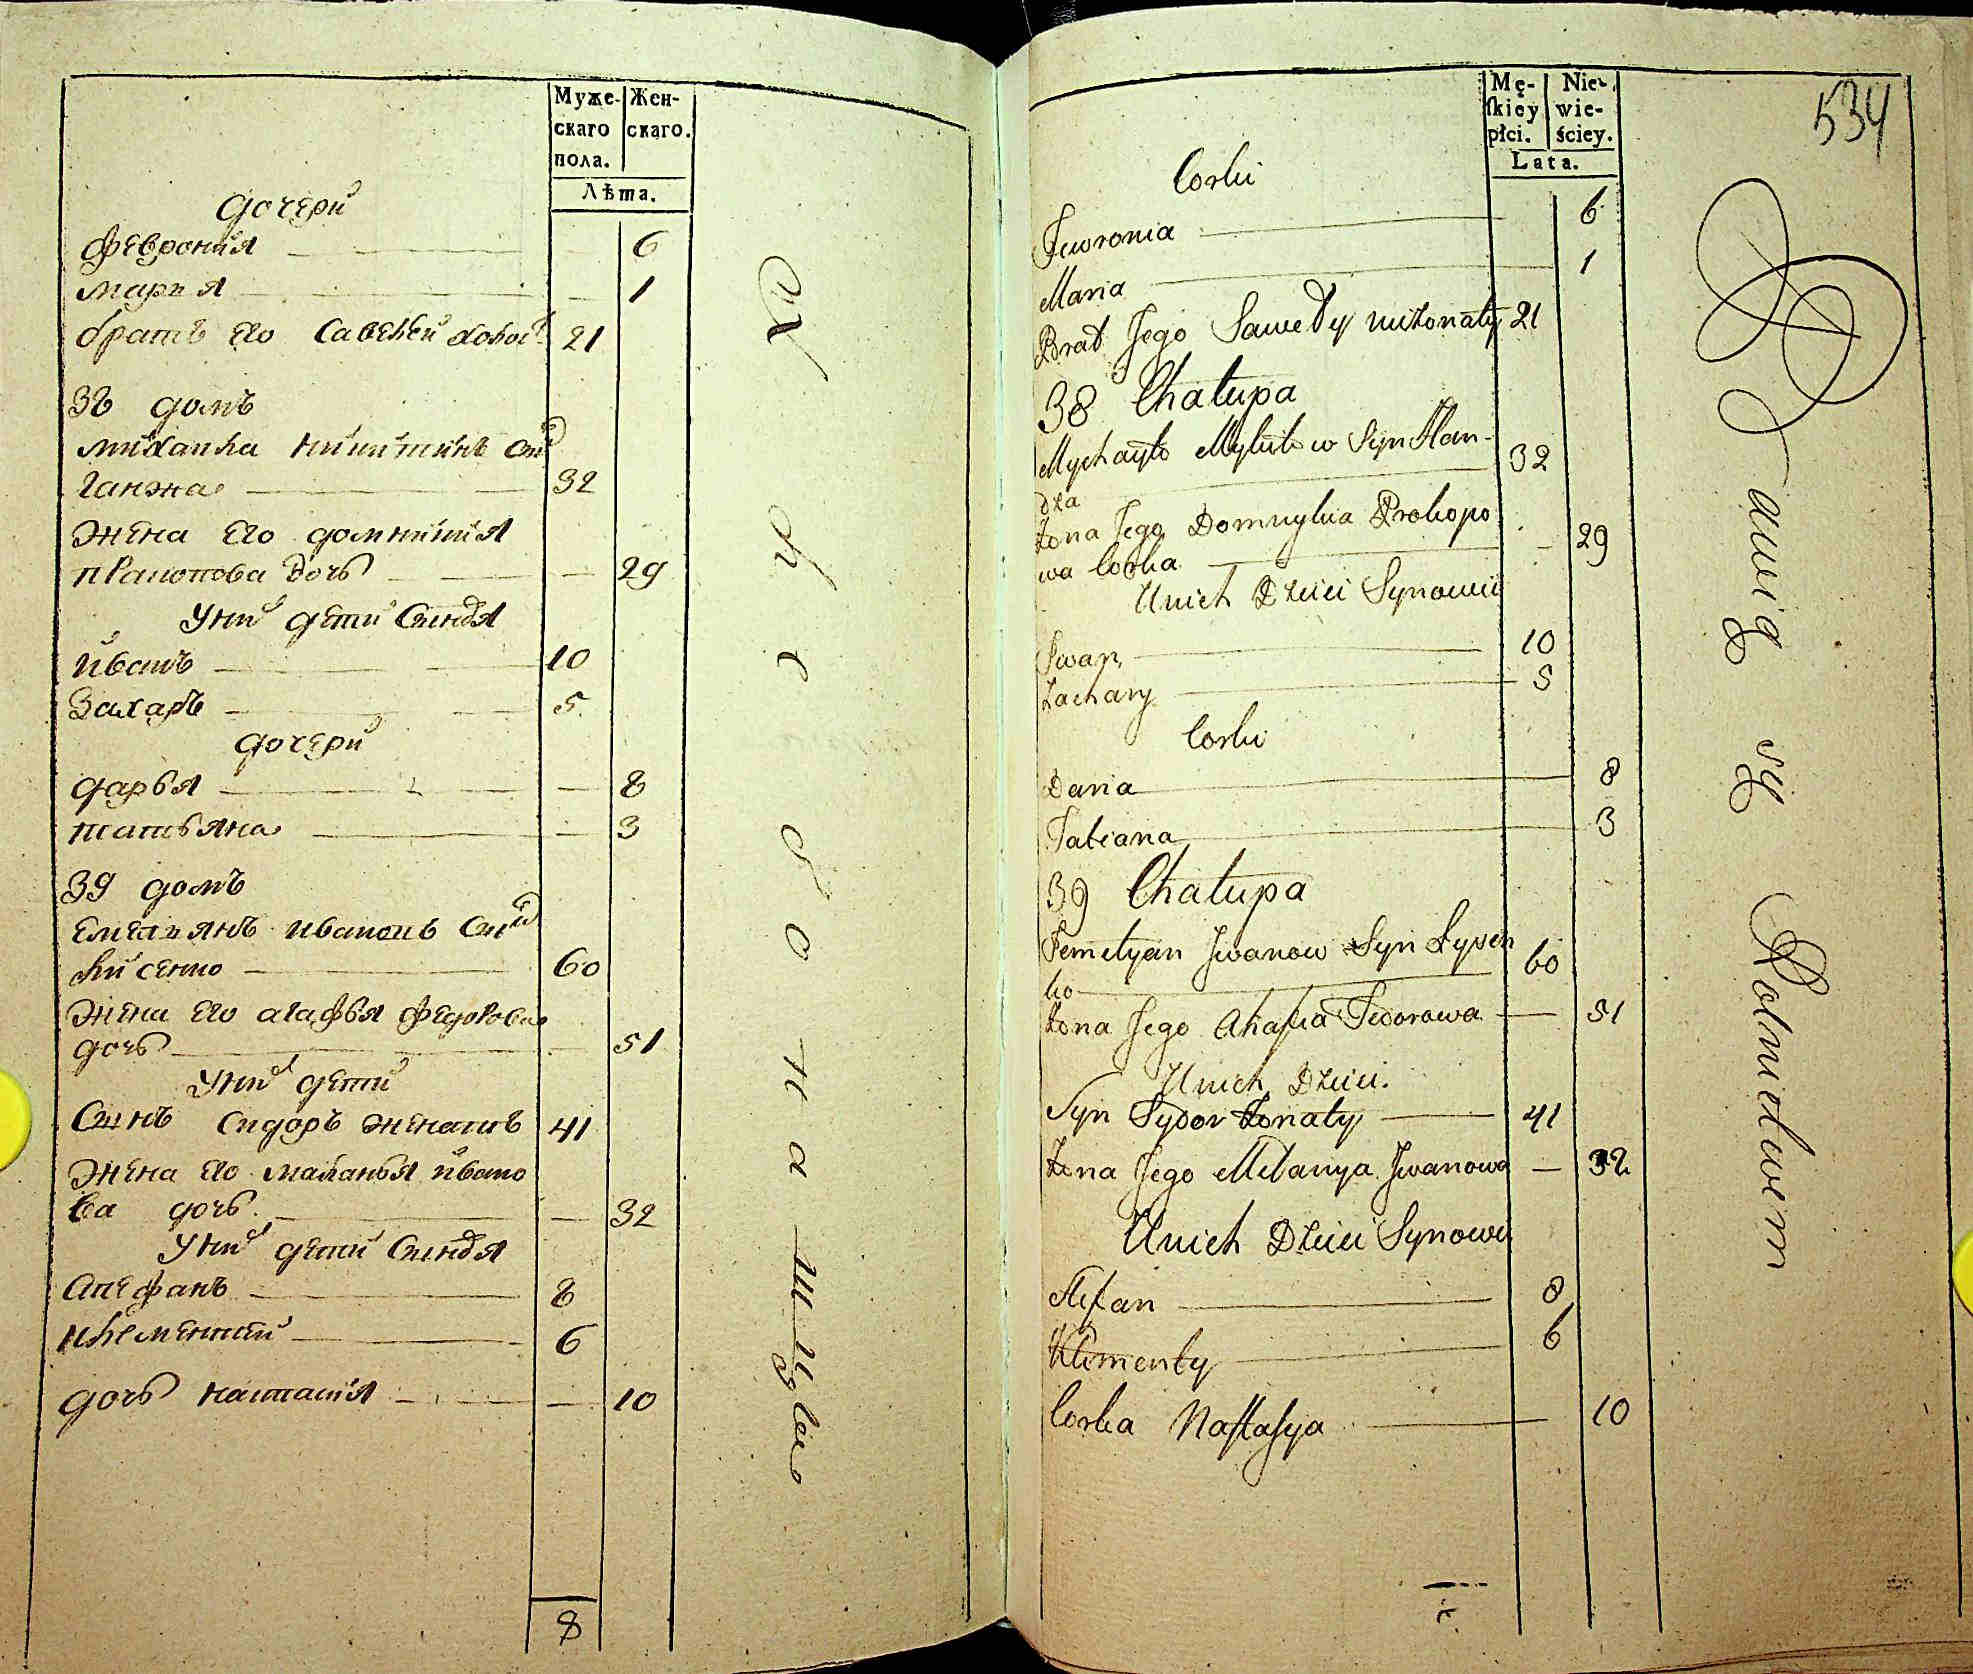 Муже-
скаго
пола.
Жен-
скаго.
Лѣта.
дочери
феврония 6
марья 1
братъ его Савелей холост 21
38 домъ
михаила никитинъ сын
ганжа 32
жена его домникия
пракопова дочь 29
у них дети сыновья
иванъ 10
Захаръ 5
дочери
дарья 8
татьяна 3
39 домъ
емельянъ ивановъ сын
лисенко 60
жена его агафья федорова
дочь 51
у них дети
Сынъ сидоръ женатъ 41
жена его маланья ивано
ва дочь 32
у них дети сыновья
Стефанъ 8
климентий 6
дочь настасия 10
8
Mę-
skiey
płci.
Nie-
wie-
ściey.
Lata.
534
Corki
Fewronia 6
Maria 1
Brat Jego Sawely nieżonaty 21
38 Chałupa
Mychayło Mykitow Syn Han-
dża 32
Żona Jego Domnykia Prokopo
wa Corka 29
U nich Dzieci Synowie
Iwan 10
Zachary 5
Corki
Daria 8
Tatiana 3
39 Chałupa
Jemelyan Jwanow Syn Łysen
ko 60
Żona Jego Ahafia Fedorowa 51
U nich Dzieci.
Syn Sydor Żonaty 41
Żona Jego Melanya Jwanowa 32
U nich Dzieci Synowie
Stefan 8
Klimenty 6
Corka Nastasya 10
Bawią się Rolnictwem